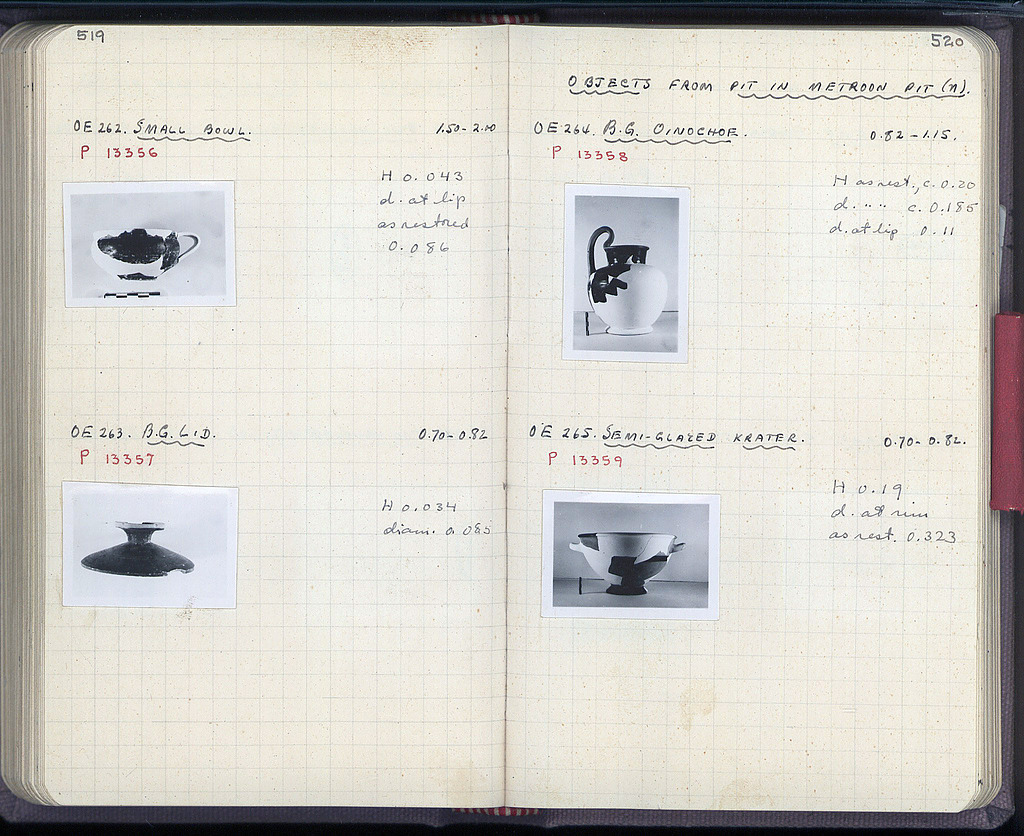 519
OE 262. SMALL BOWL. 1.50-2.00
P 13356
H 0.043
d. at lip
as restored
0.086
OE 263. B.G. LID. 0.70-0.82
P 13357
H 0.034
diam. 0.085
520
OBJECTS FROM PIT IN METROON PIT (N).
OE 264. B.G. OINOCHOE. 0.82-1.15.
P 13358
H as rest., c. 0.20
d. " " c. 0.185
d. at lip 0.11
OE 265. SEMI-GLAZED KRATER. 0.70-0.82.
P 13359
H 0.19
d. at rim
as rest. 0.323